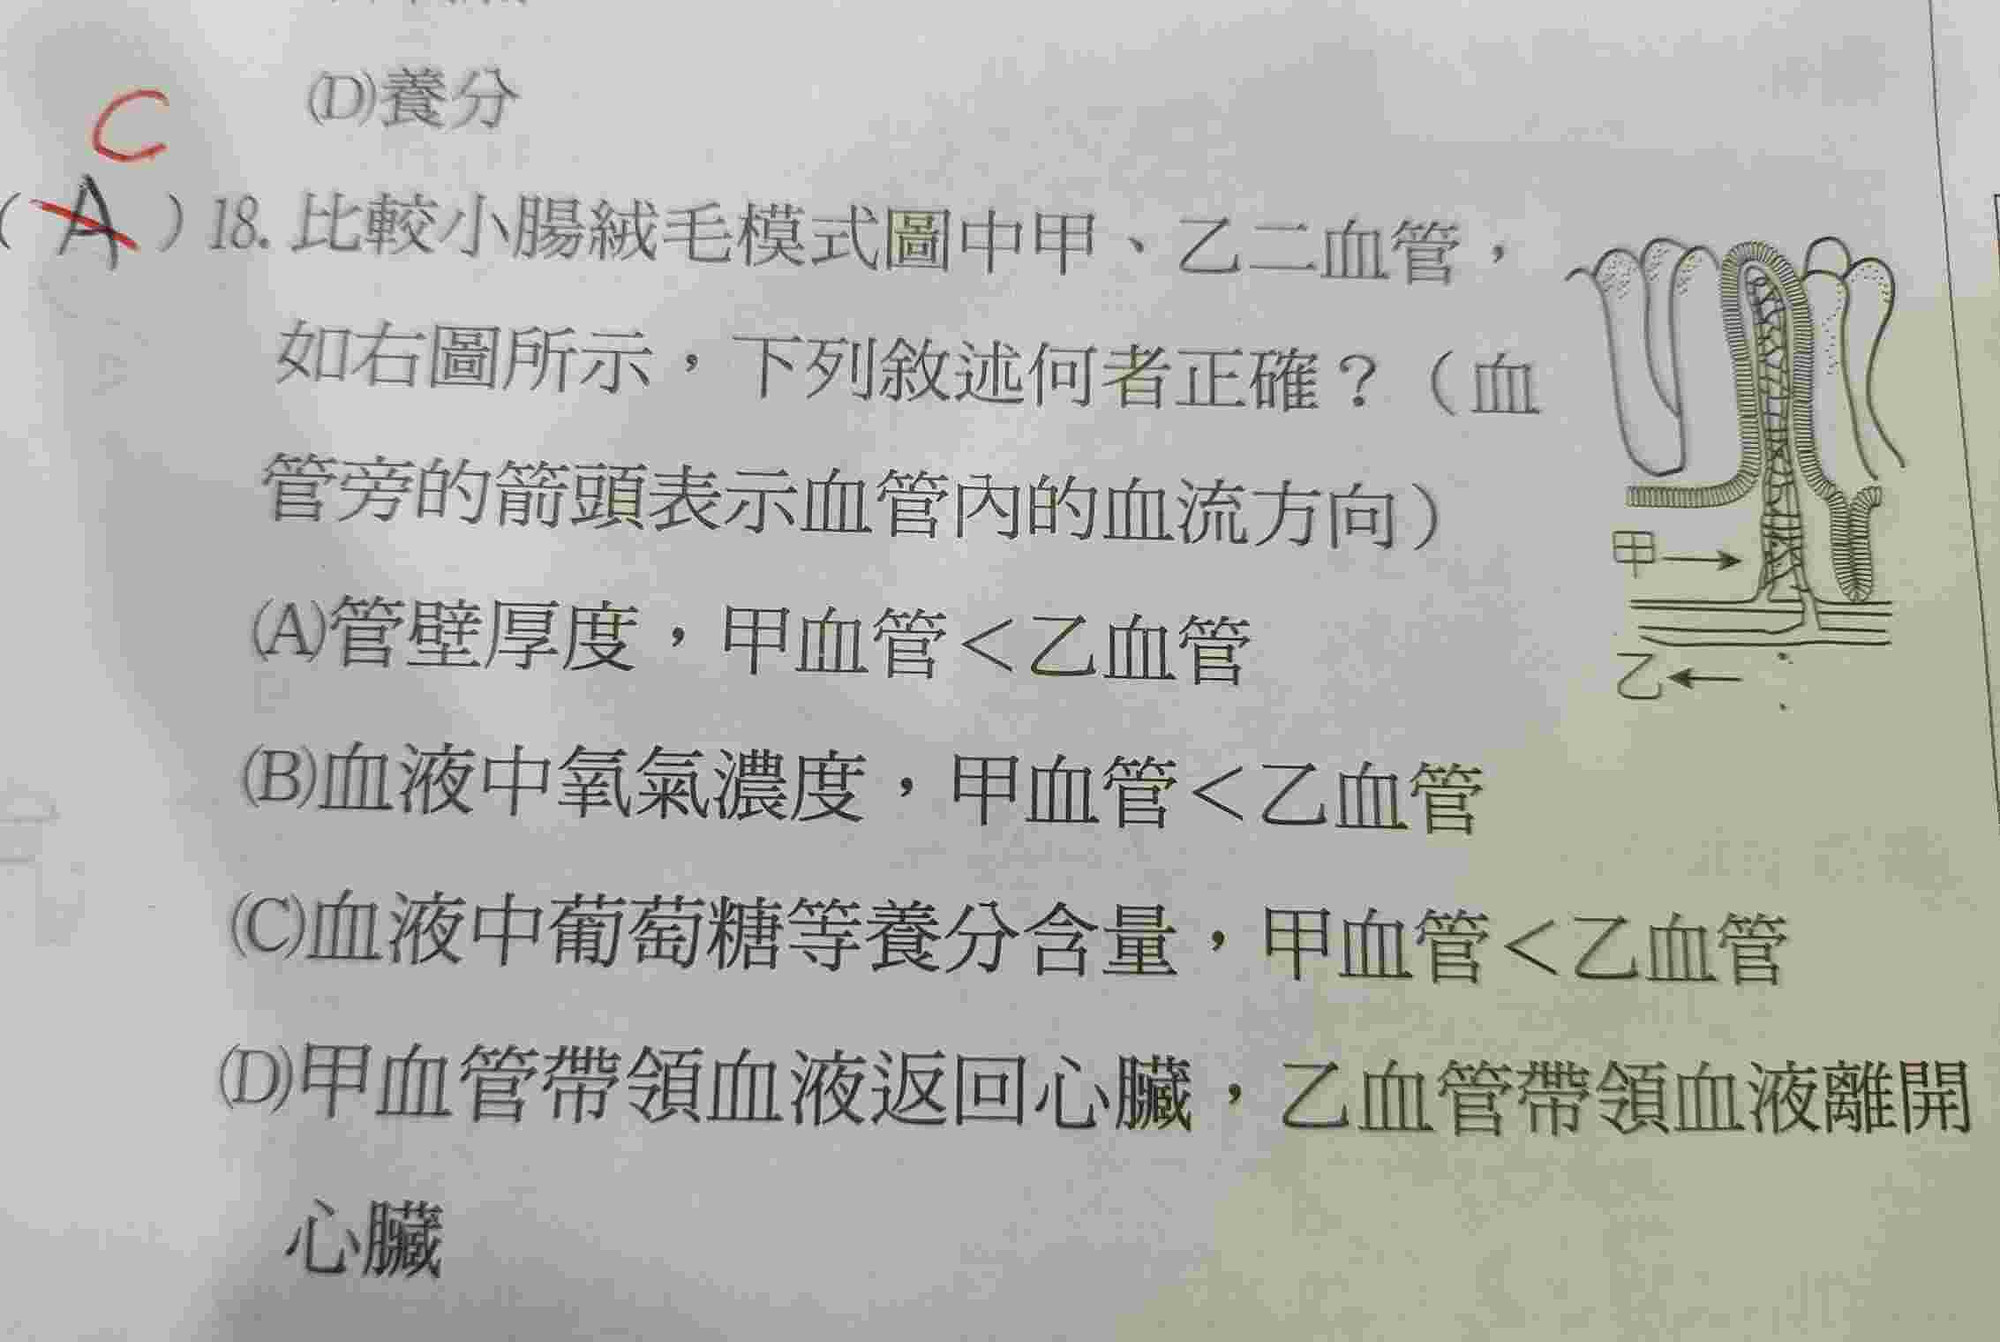 (D)養分
C
( A )18. 比較小腸絨毛模式圖中甲、乙二血管，
如右圖所示，下列敘述何者正確？（血
管旁的箭頭表示血管內的血流方向）
(A)管壁厚度，甲血管＜乙血管
(B)血液中氧氣濃度，甲血管＜乙血管
(C)血液中葡萄糖等養分含量，甲血管＜乙血管
(D)甲血管帶領血液返回心臟，乙血管帶領血液離開
心臟
甲
乙